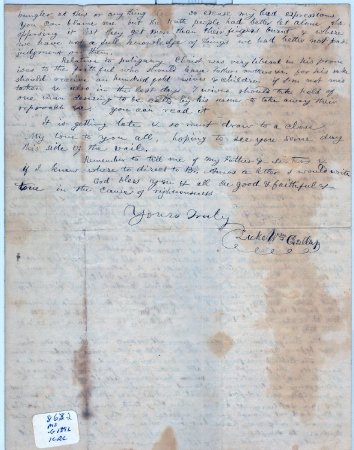 bungler at this or any thing so excuse my bad expressions
You can blame me but the truth people had better let alone than
opposing it lest they get more than their fingers burnt & where
we have not a full knowledge of things we had better not pass
judgment on them.
Relative to poligamy Christ was very liberal in his promises
to the faithful who should leave fathers mothers &c for his sake
should receive an hundred fold wives & children if I am not mis
taken & also in the last days 7 wives should take hold of
one man desiring to be called by his name to take away their
reproach you can read it
It is getting late & so must draw to a close
My love to you all hoping to see you some day
this side of the vails.
Remember to tell me of my Father &
If I knew where to direct to Br. a letter I would write
God bless you & all the good & faithful &
true in the cause of righteousness
Yours truly
Gallup
8682
MS